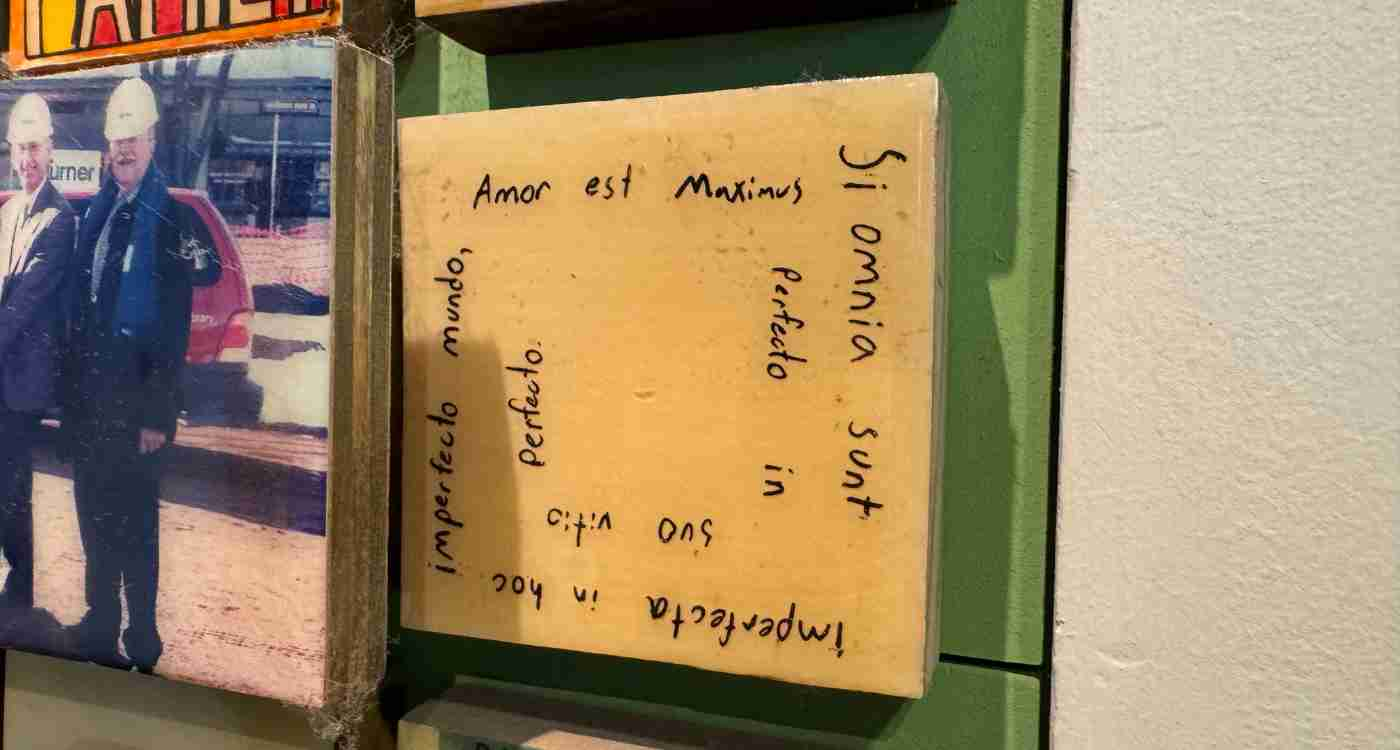 urner
Si omnia sunt
imperfecta in hoc
imperfecto mundo,
Amor est Maximus
perfecto in
suo vitio
perfecto.